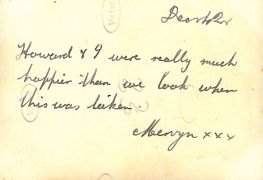 Howard & I were really much
happier than we look when
this was taken.
Mervyn xxx